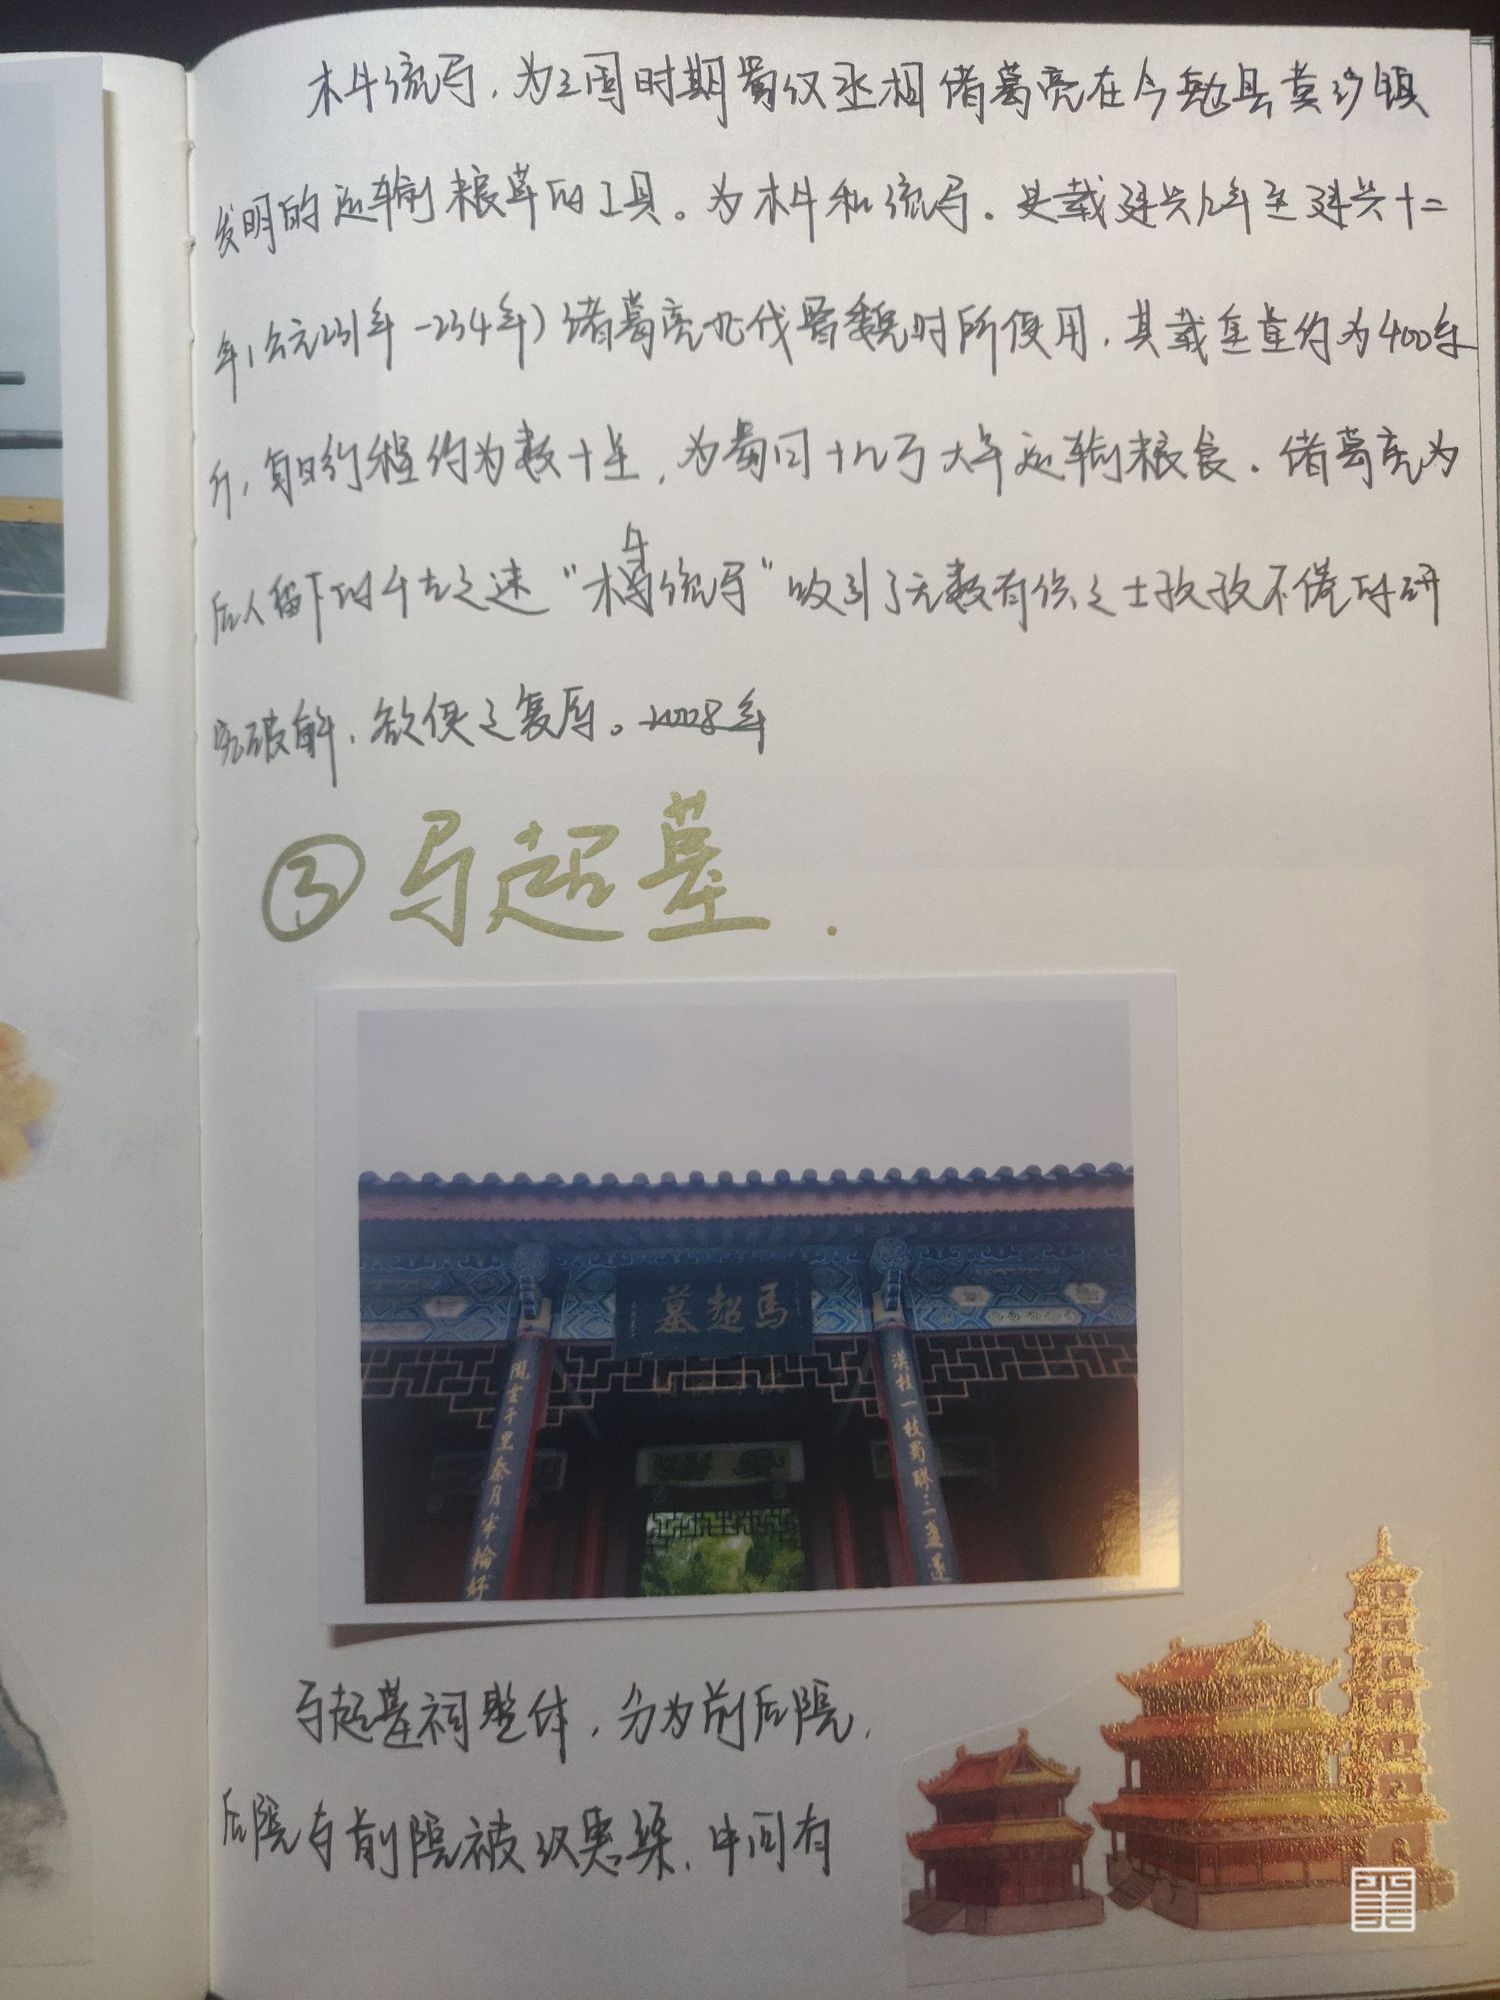 木牛流马，为三国时期蜀汉丞相诸葛亮在今勉县黄沙镇
发明的运输粮草的工具。为木牛和流马。史载建兴九年至建兴十二
年（公元231年-234年）诸葛亮北伐曹魏时所使用，其载重量约为400多
斤，每日约程约为数十里，为蜀国十几万大军运输粮食。诸葛亮为
后人留下的千古之迷“木牛流马”吸引了无数有识之士孜孜不倦的研
究破解，欲使之复原。2008年
③马超墓.
馬超墓
漢柱一枝蜀
隴雲千里秦月半輪好
马超墓祠整体，分为前后院，
后院与前院被汉惠渠，中间有